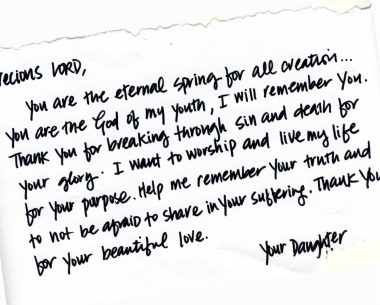 recious LORD,
You are the eternal spring for all creation...
You are the God of my youth, I will remember You.
Thank You for breaking through sin and death for
your glory. I want to worship and live my life
for Your purpose. Help me remember Your truth and
to not be afraid to share in Your suffering. Thank You
for Your beautiful love.
Your Daughter